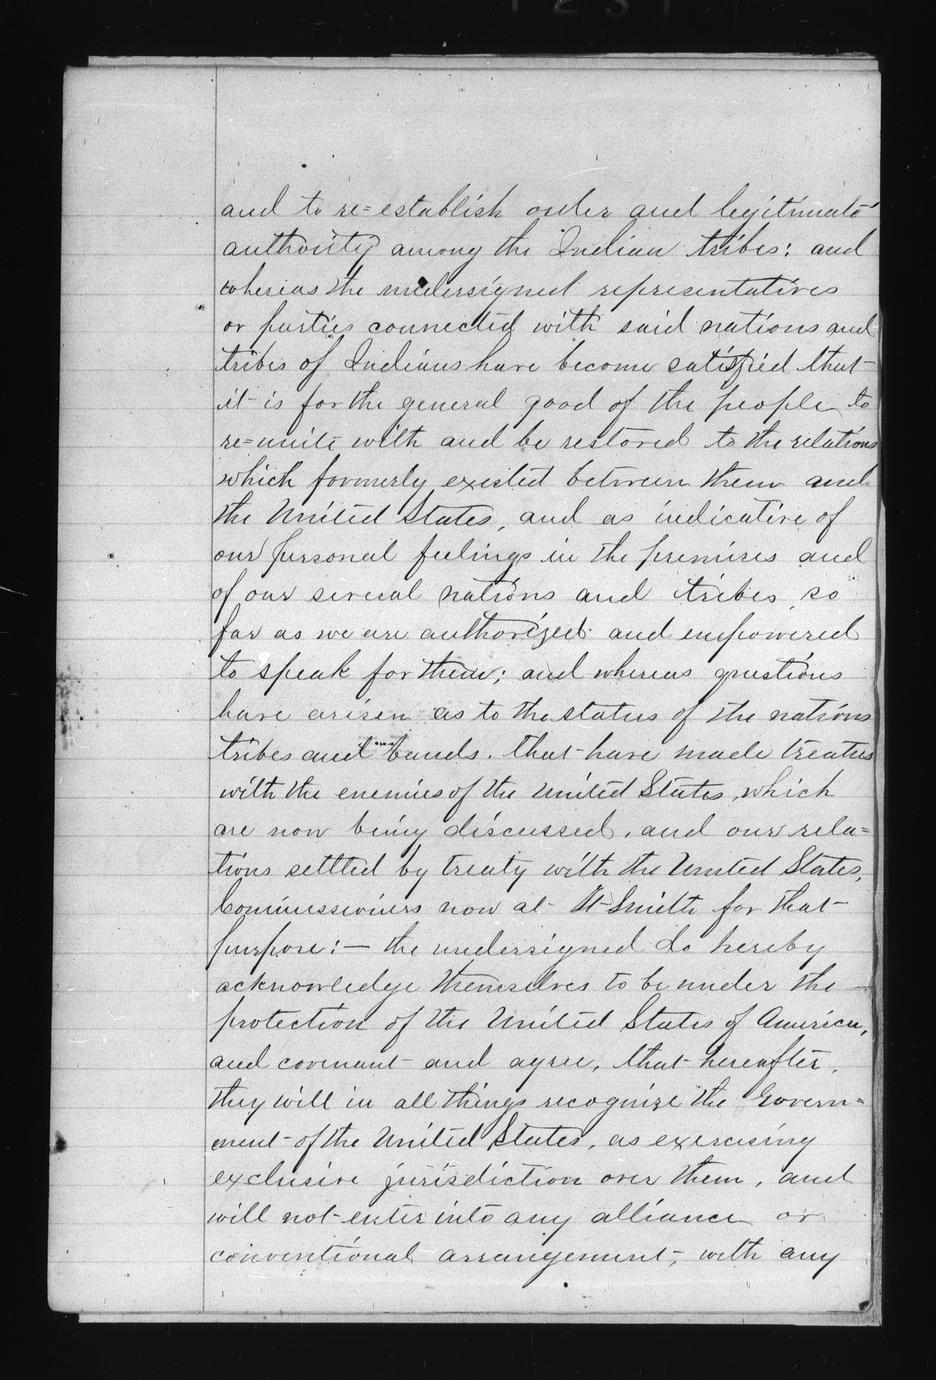 and to re=establish order and legitimate
authority among the Indian tribes; and
whereas the undersigned representatives
or parties connected with said nations and
tribes of Indians have become satisfied that
it is for the general good of the people to
re=unite with and be restored to the relations
which formerly existed between them and
the United States, and as indicative of
our personal feelings in the premises and
of our several nations and tribes, so
far as we are authorized and empowered
to speak for them; and whereas questions
have arisen as to the status of the nations
tribes and bands. that have made treaties
with the enemies of the United States, which
are now being discussed, and our rela=
tions settled by treaty with the United States,
Commissioners now at Ft Smith for that
purpose:— the undersigned do hereby
acknowledge themselves to be under the
protection of the United States of America,
and covenant and agree, that hereafter,
they will in all things recognize the Govern=
ment of the United States, as exercising
exclusive jurisdiction over them, and
will not enter into any alliance or
conventional arrangement, with any